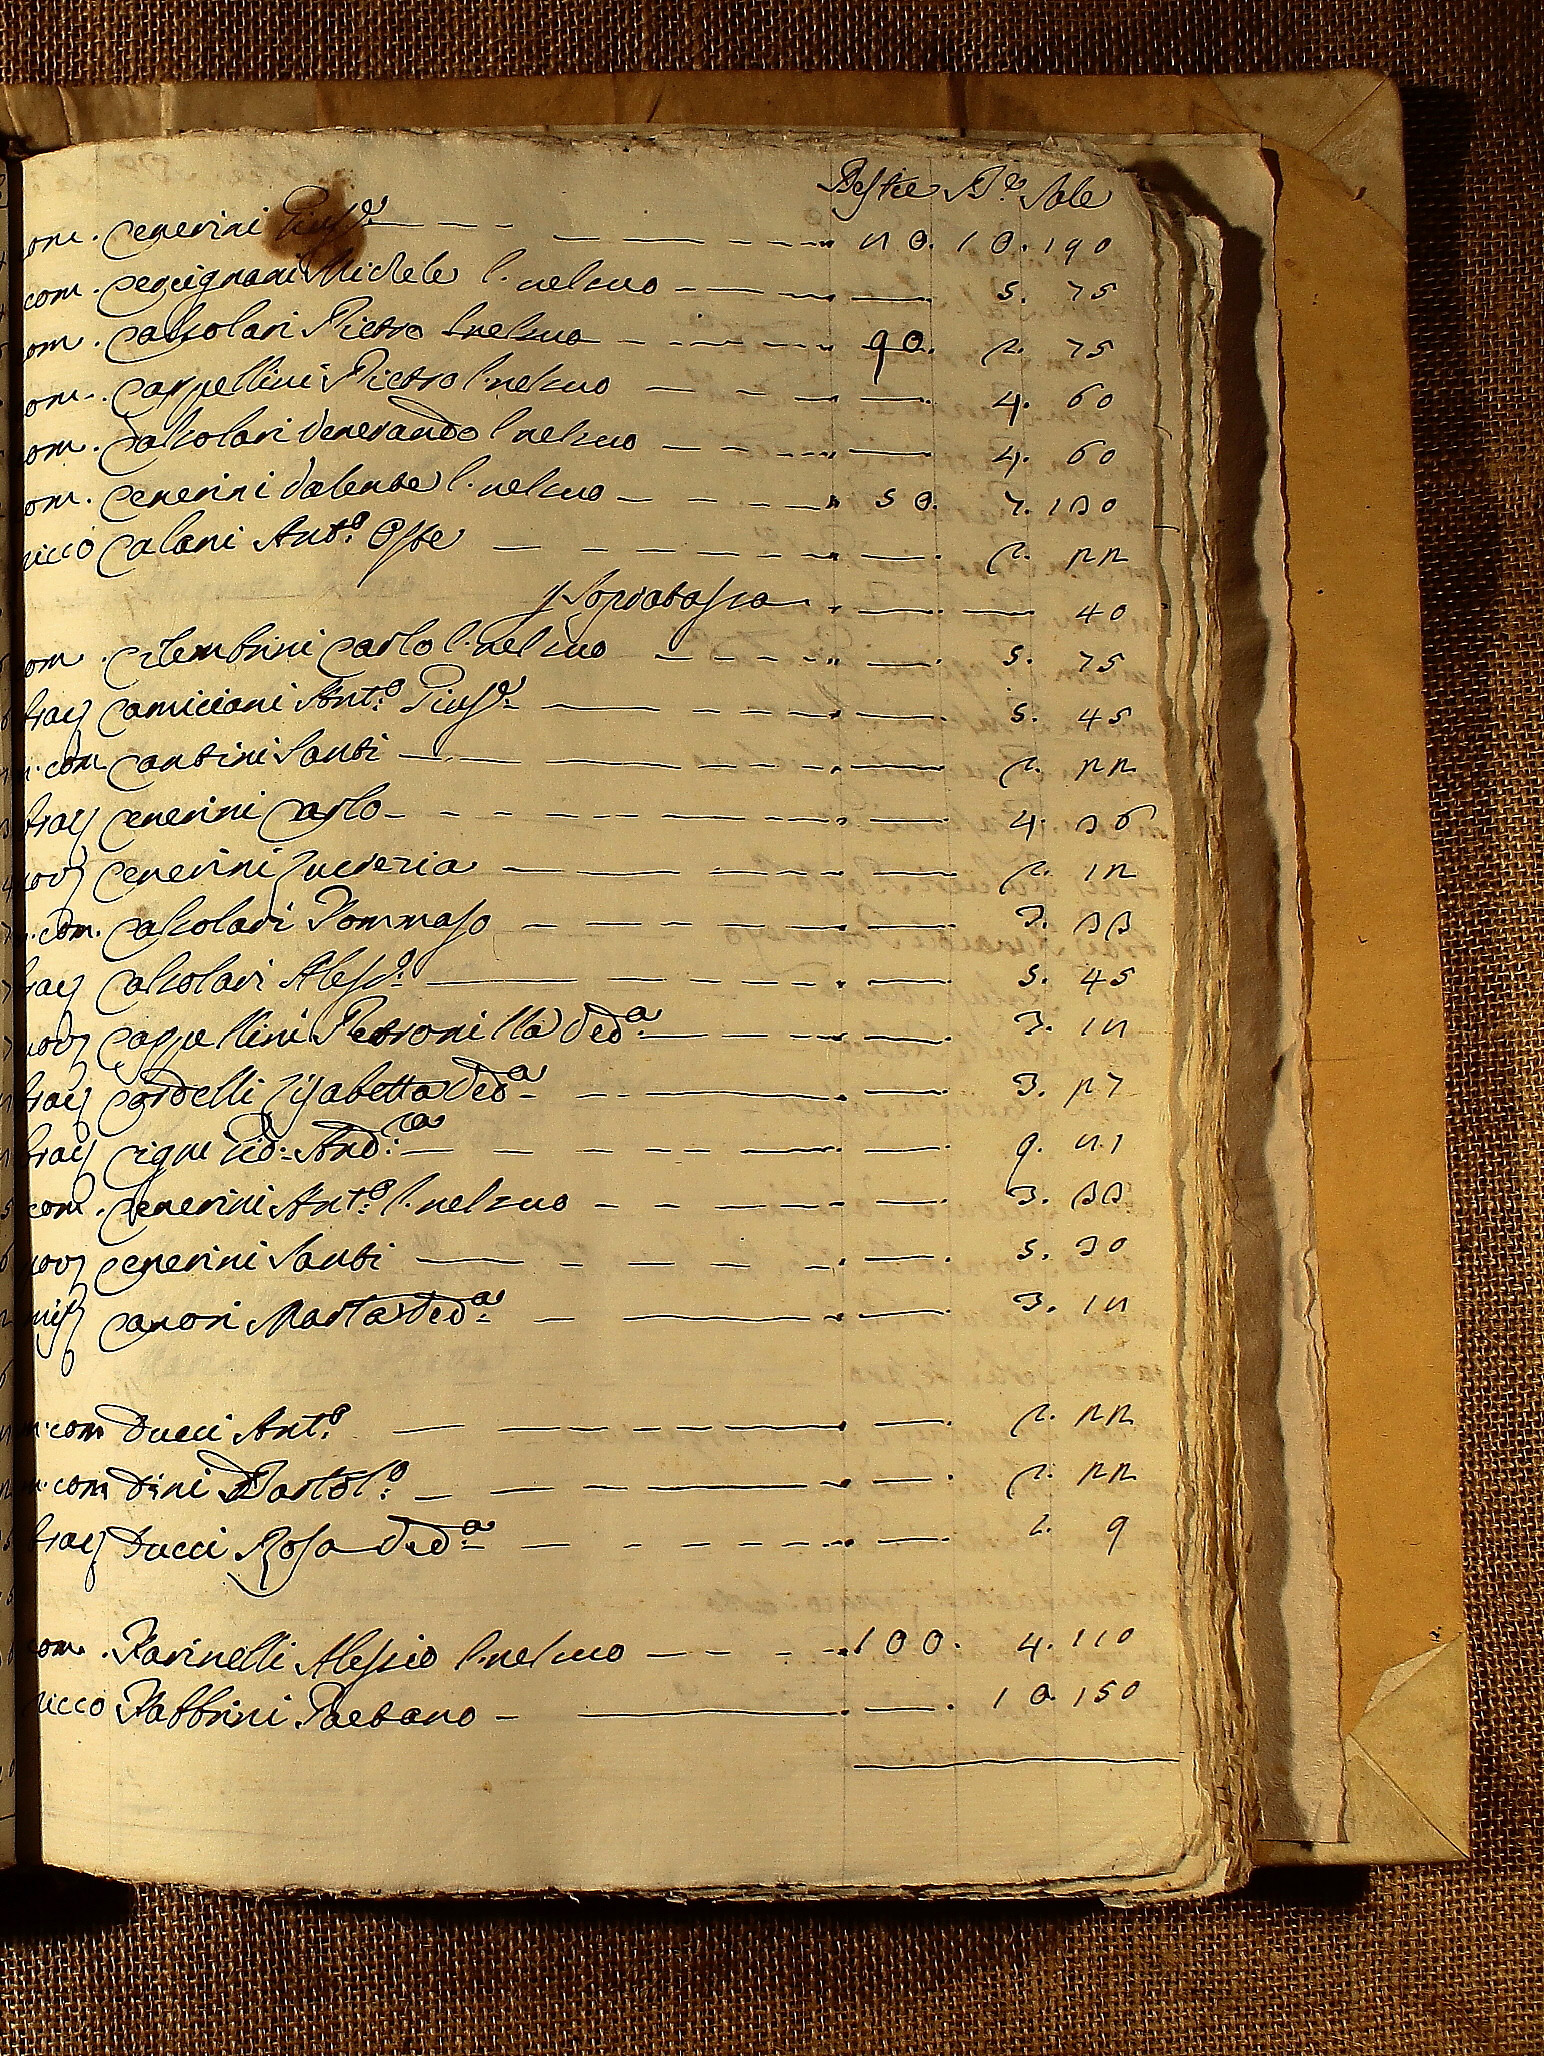 Bestie B.e Sale
com. Cenerini Gius.e 20. 10. 190
com. Cercignani Michele l. nel suo 5. 75
com. Calsolari Pietro l. nel suo 90. 2. 75
com. Cappellini Pietro l. nel suo 4. 60
com. Calsolari Venerando l. nel suo 4. 60
com. Cenerini Valente l. nel suo 50. 7. 130
ricco Calani Ant.o Oste 2. 22
40
com. Carlo l. nel suo 5. 75
Camiciani Ant.o Gius.e 5. 45
m. com. Cantini Santi 2. 22
Cenerini Carlo 4. 36
Cenerini Lucrezia 2. 12
m. com. Calsolari Tommaso 3. 33
Calsolari Aless.o 5. 45
Cappellini Petronilla Ved.a 3. 12
Cordelli Lisabetta Ved.a 3. 27
9. 21
com. Cenerini Ant.o l. nel suo 3. 33
Cenerini Santi 5. 30
mis. Canori Marta Ved.a 3. 12
m. com Ducci Ant.o 2. 22
m. com Dini Bartol.o 2. 22
Ducci Rosa Ved.a 2. 9
com. Farinelli Alessio l. nel suo 100. 4. 110
ricco Fabbrini Gaetano 10. 150